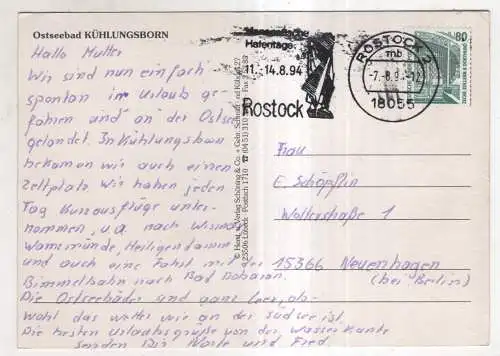 Ostseebad KÜHLUNGSBORN
Hallo Mutter
Wir sind nun einfach
spontan im Urlaub ge-
fahren und an der Ostsee
gelandet. In Kühlungsborn
bekamen wir auch einen
Zeltplatz. Wir haben jeden
Tag Kurzausflüge unter-
nommen, u.a. nach Wismar,
Warnemünde, Heiligendamm
und auch eine Fahrt mit der
Bimmelbahn nach Bad Doberan.
Die Ostseebäder sind ganz leer, ob-
wohl das Wetter wie an der Südsee ist.
Die besten Urlaubsgrüße von der Wasserkante
senden Dir und Fred
© Horst Verlag Schöning & Co. + Gebr. Schmidt
23506 Lübeck · Postfach 1710 ☎ (0451) 310
Hafentage
11.-14.8.94
Rostock
ROSTOCK 2
mb
-7.-8.9
18055
80
Frau
E. Schöpflin
Wolterstraße 1
15366 Neuenhagen
(bei Berlin)